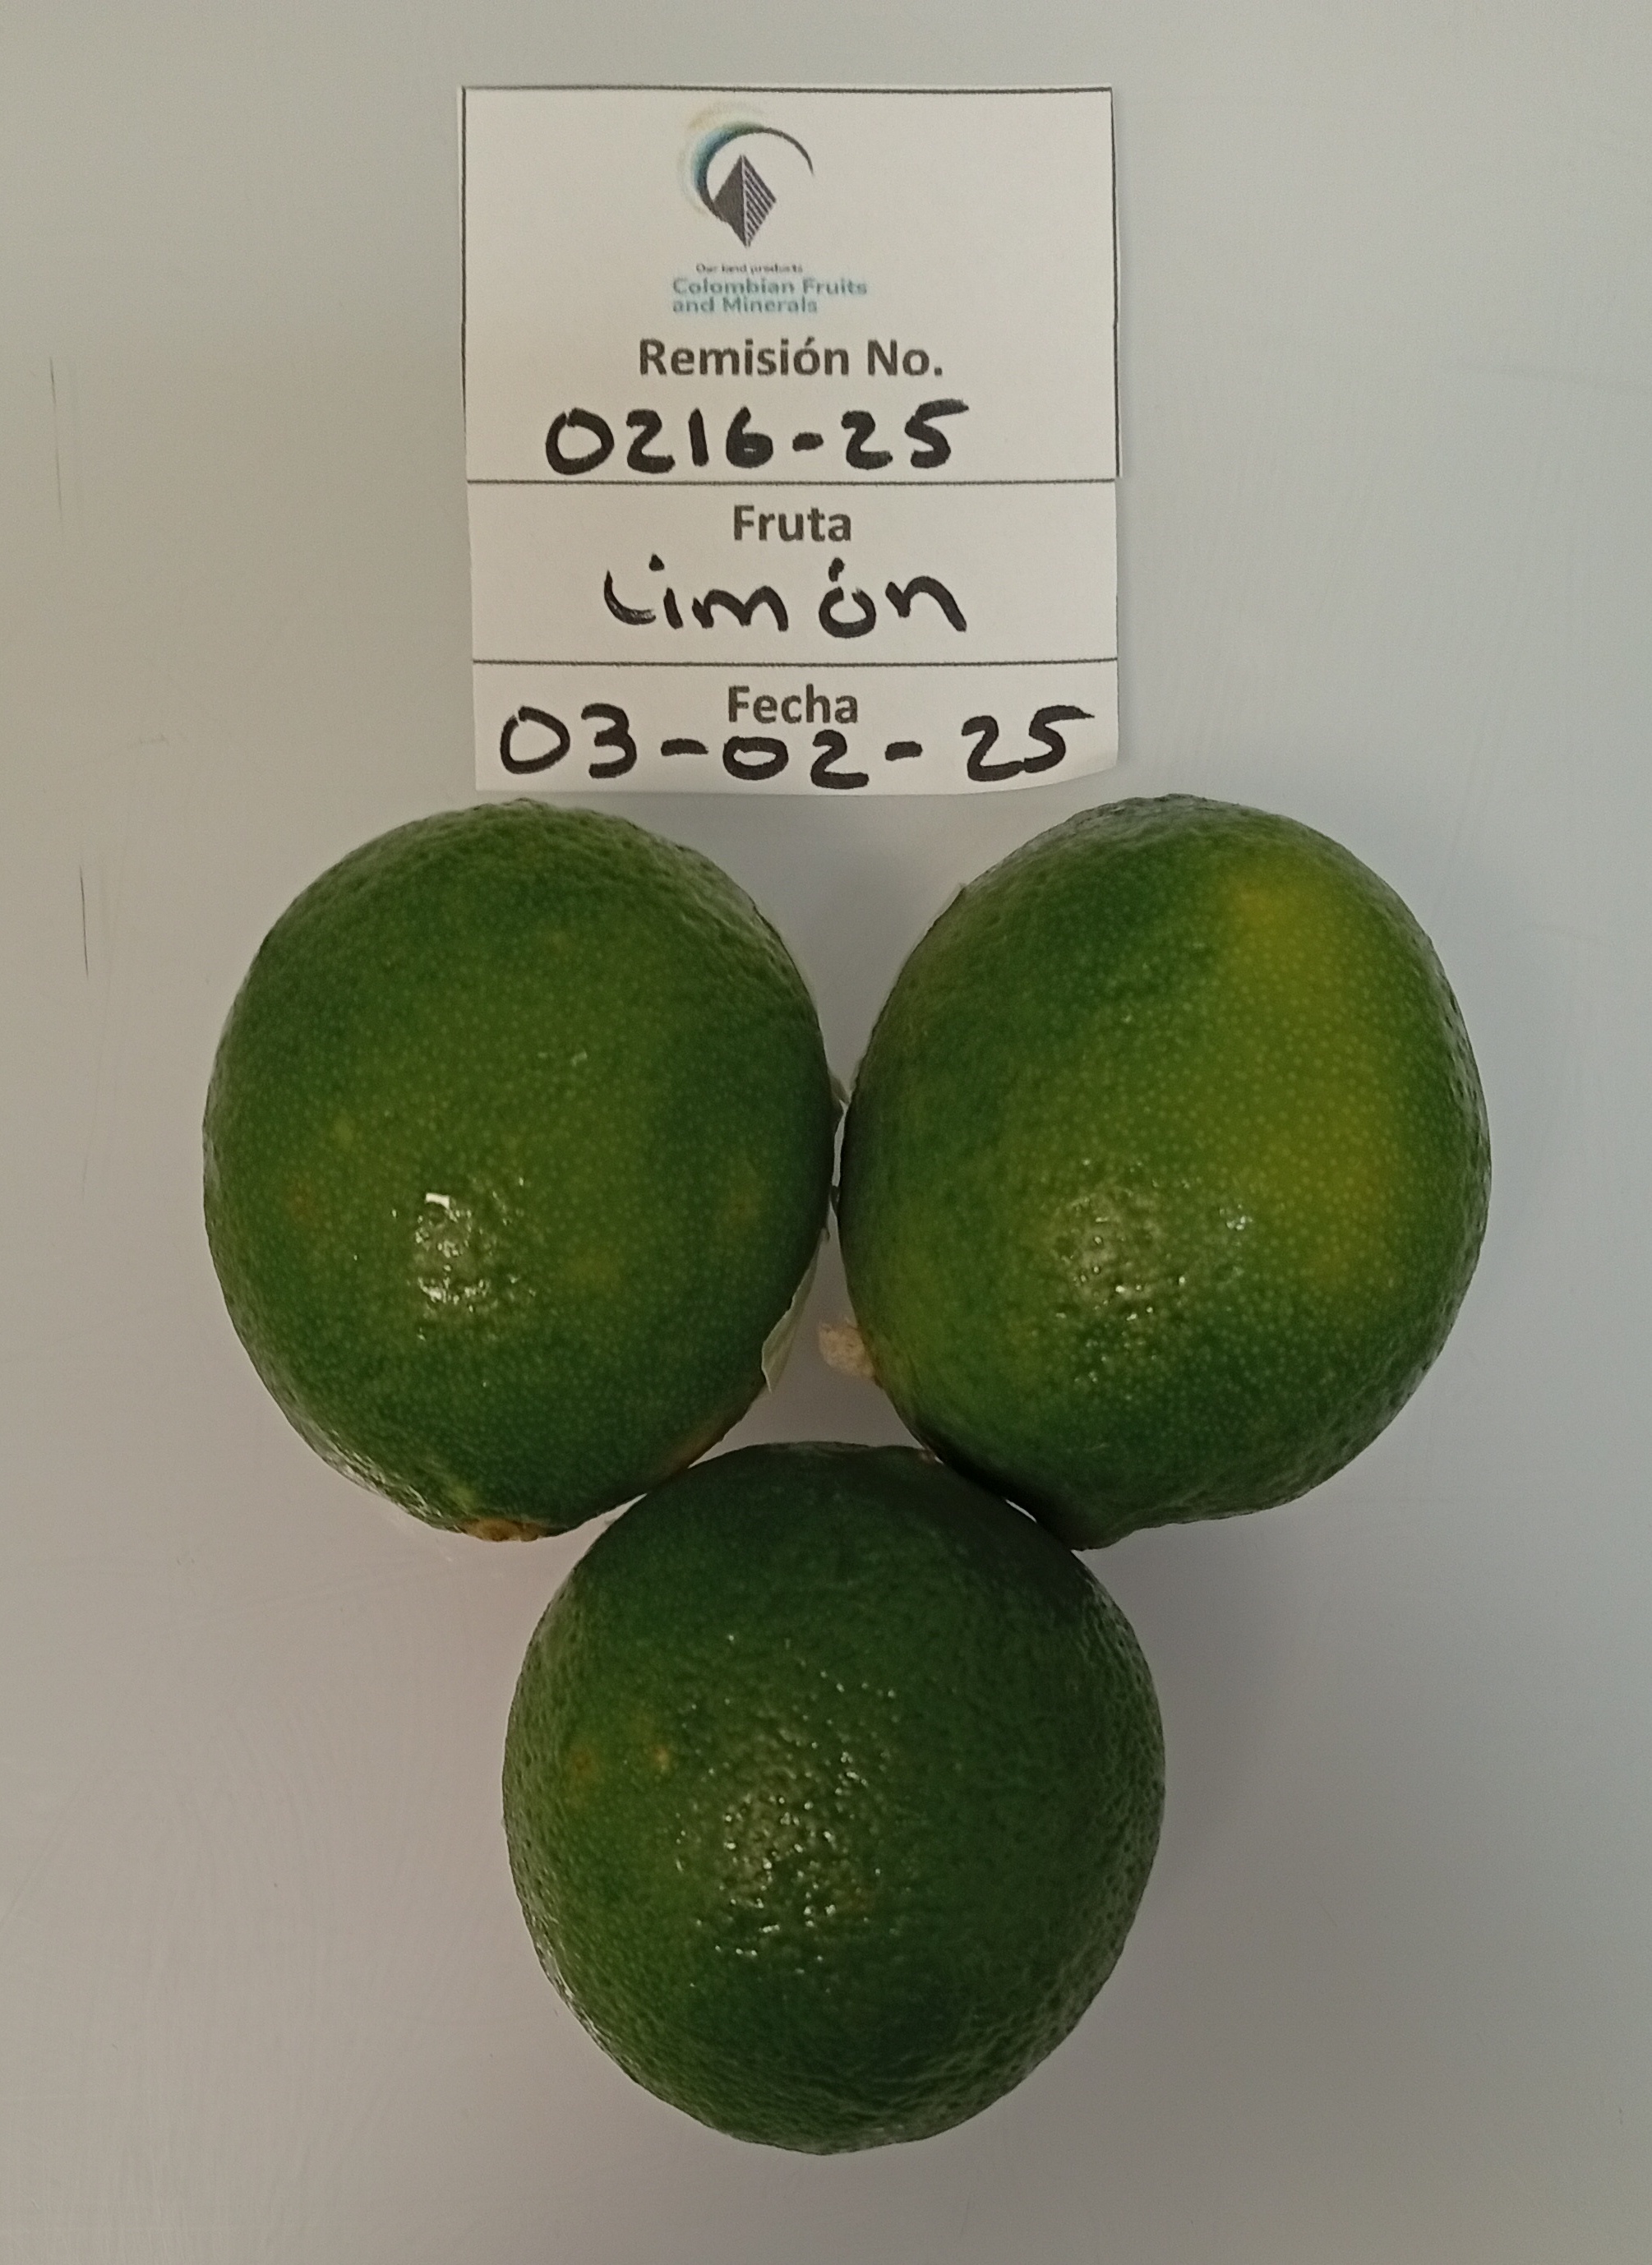 Our land products
Colombian Fruits
and Minerals
Remisión No.
0216-25
Fruta
Limón
Fecha
03-02-25